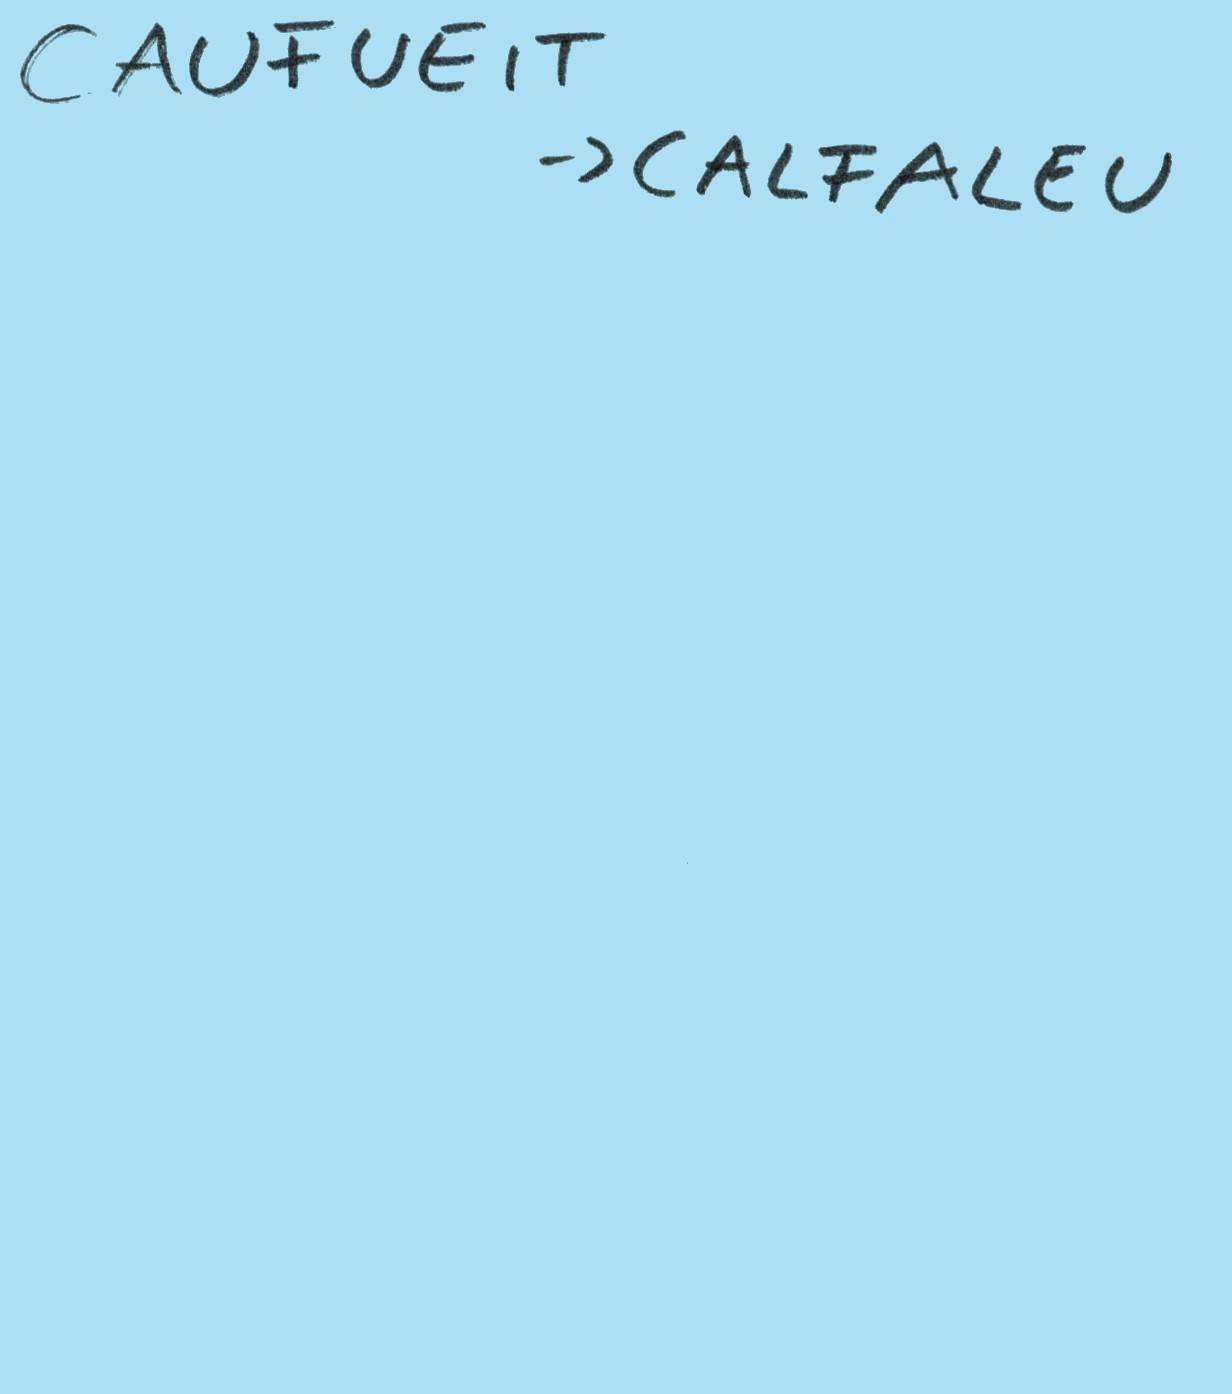 CAUFUEIT
->CALFALEU